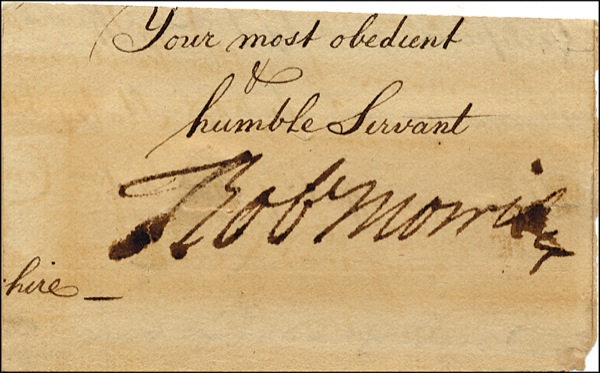 Your most obedient
&
humble Servant
Robt Morris
hire —